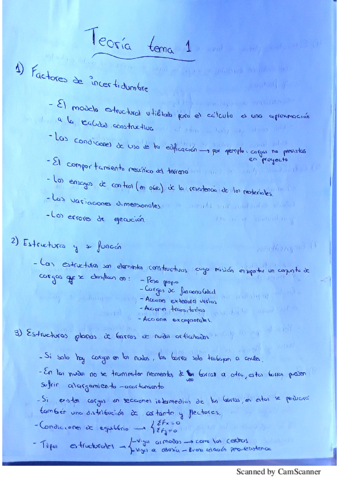 Teoría tema 1
1) Factores de incertidumbre
- El modelo estructural utilizado para el cálculo es una aproximación
a la realidad constructiva
- Las condiciones de uso de la edificación → por ejemplo: cargas no previstas
en proyecto
- El comportamiento mecánico del terreno
- Los ensayos de control (en obra) de la resistencia de los materiales
- Las variaciones dimensionales
- Los errores de ejecución
2) Estructura y su función
- Las estructuras son elementos constructivos cuya misión es soportar un conjunto de
cargas que se clasifican en: - Peso propio
- Cargas de funcionalidad
- Acciones exteriores varias
- Acciones
- Acciones excepcionales
3) Estructuras planas de barras de nudos articulados
- Si solo hay cargas en los nudos, las barras solo trabajan a
- En los nudos no se transmiten momentos de unas barras a otras, estas barras pueden
sufrir alargamiento - acortamiento
- Si existen cargas en secciones intermedias de las barras, en estas se producirá
también una distribución de cortantes y flectores.
- Condiciones de equilibrio → { ΣFx=0
ΣFy=0
- Tipos estructurales → { - Vigas armadas → como las cerchas
- Vigas
Scanned by CamScanner